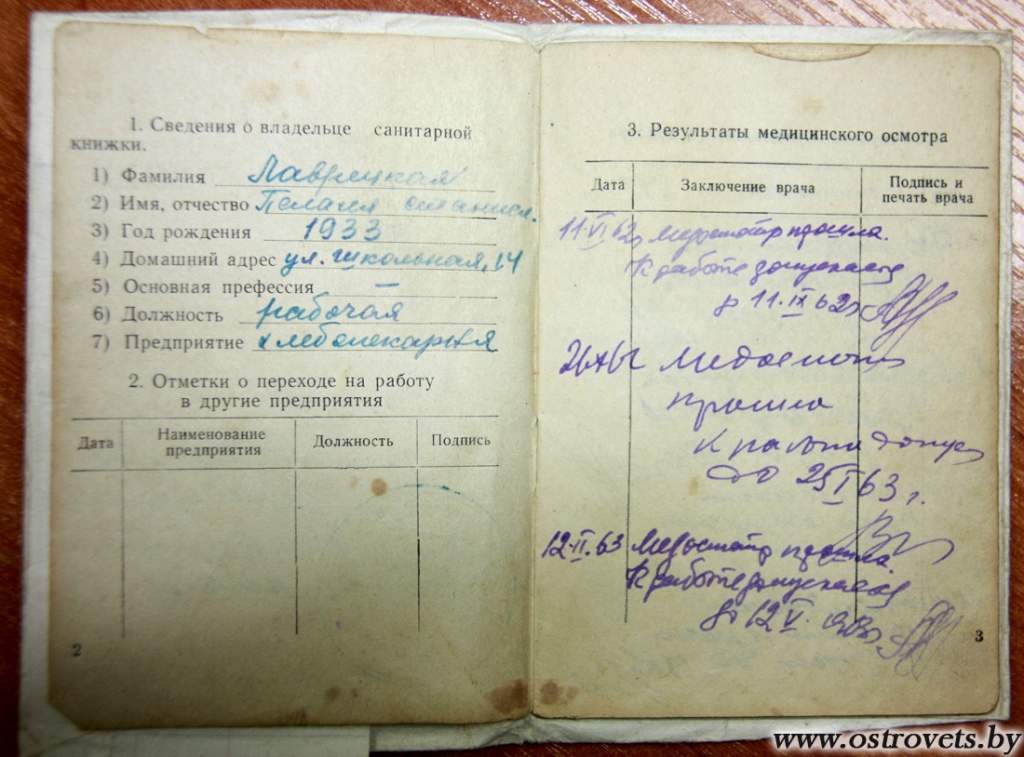 1. Сведения о владельце санитарной
книжки.
1) Фамилия Лаврецкая
2) Имя, отчество Пелагея станисл.
3) Год рождения 1933
4) Домашний адрес ул. школьная, 14
5) Основная прфессия —
6) Должность рабочая
7) Предприятие хлебопекарня
2. Отметки о переходе на работу
в другие предприятия
Дата
Наименование
предприятия
Должность
Подпись
2
3. Результаты медицинского осмотра
Дата
Заключение врача
Подпись и
печать врача
11.VI 62г Медосмотр прошла.
К работе допускается
до 11.IX 62г
Медосмотр
прошла
К работе допус
до 25 I 63 г.
12.II.63 Медосмотр прошла.
К работе допускается
до 12 V
3
www.ostrovets.by